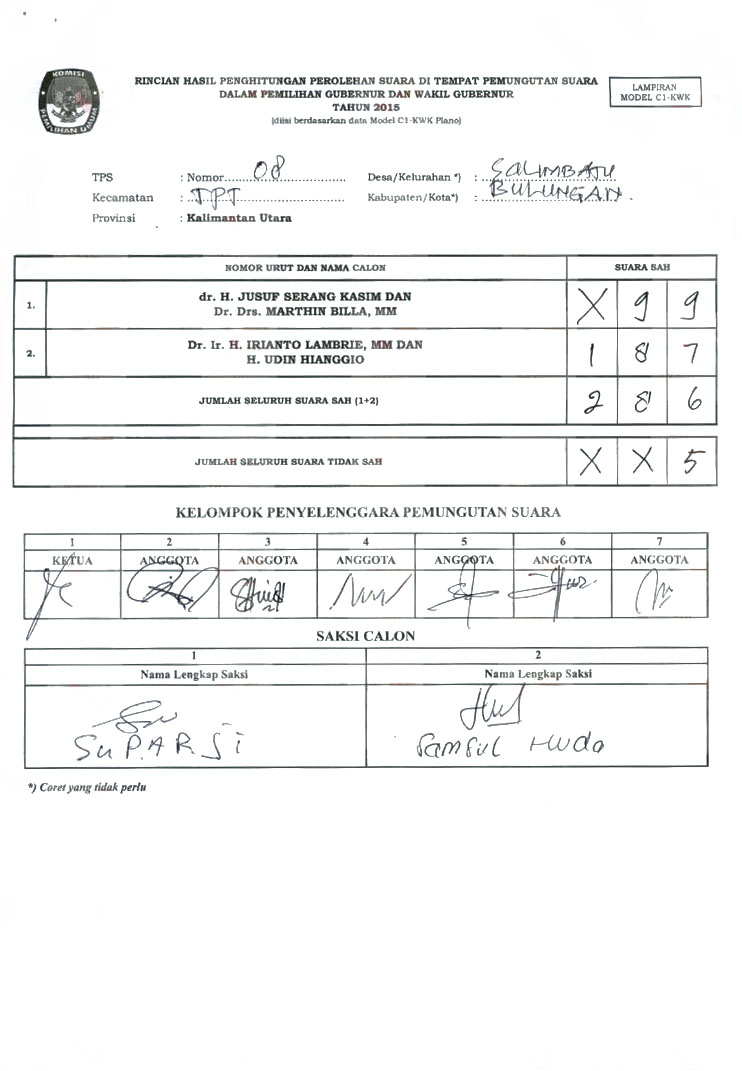 KOMISI
PEMILIHAN UMUM
RINCIAN HASIL PENGHITUNGAN PEROLEHAN SUARA DI TEMPAT PEMUNGUTAN SUARA
DALAM PEMILIHAN GUBERNUR DAN WAKIL GUBERNUR
TAHUN 2015
(diisi berdasarkan data Model C1-KWK Plano)
LAMPIRAN
MODEL C1-KWK
TPS : Nomor 08 Desa/Kelurahan *) : SALIMBATU
Kecamatan : TPT Kabupaten/Kota*) : BULUNGAN.
Provinsi : Kalimantan Utara
NOMOR URUT DAN NAMA CALON SUARA SAH
1. dr. H. JUSUF SERANG KASIM DAN
Dr. Drs. MARTHIN BILLA, MM X 9 9
2. Dr. Ir. H. IRIANTO LAMBRIE, MM DAN
H. UDIN HIANGGIO 1 8 7
JUMLAH SELURUH SUARA SAH (1+2) 2 8 6
JUMLAH SELURUH SUARA TIDAK SAH X X 5
KELOMPOK PENYELENGGARA PEMUNGUTAN SUARA
1 2 3 4 5 6 7
KETUA ANGGOTA ANGGOTA ANGGOTA ANGGOTA ANGGOTA ANGGOTA
SAKSI CALON
1 2
Nama Lengkap Saksi Nama Lengkap Saksi
SUPARJI Samsul Huda
*) Coret yang tidak perlu